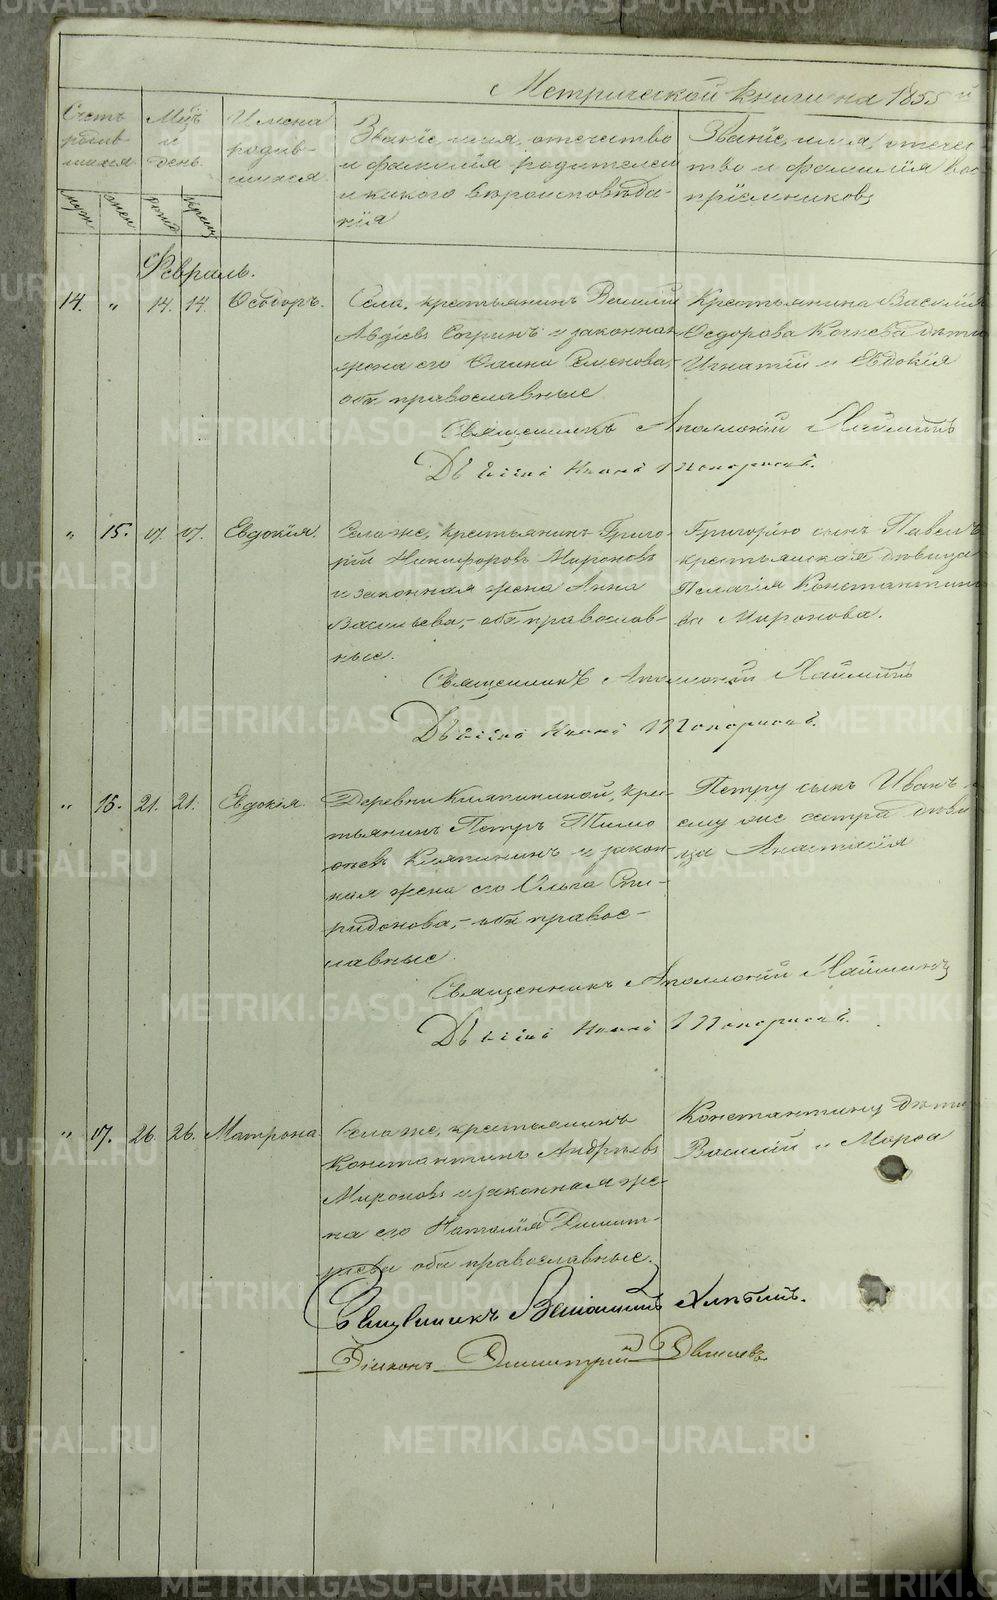 Метрической книги на 1855 й
Счетъ родив-шихся
Мцъ и день
Имена родив-шихся
Званіе, имя, отечество
и фамилія родителей
и какого вѣроисповѣда-
нія
Званіе, имя, отечес
тво и фамилія вос
пріемниковъ
муж
жен
рожд
крещ
Февраль.
14. " 14. 14. Ѳеодоръ.
Села, крестьянинъ Василій
Авдіевъ Согринъ и законная
жена его Семенова,
оба православные
Крестьянина Василія
Ѳедорова дѣти
Игнатій и Евдокія
Священникъ Аполлоній
" 15. 17. 17. Евдокія.
Села же, крестьянинъ Григо-
рій Никифоровъ Мироновъ
и законная жена Анна
Васильева,- оба православ-
ные.
Григорію сынъ Павелъ
крестьянская дѣвица
Пелагія Константино
ва Миронова.
Священникъ Аполлоній
" 16. 21. 21. Евдокія.
Деревни Кляпининой, крес-
тьянинъ Петръ Тимо
ѳеевъ Кляпининъ и закон-
ная жена его Ольга Спи-
ридонова,- оба правос-
лавные.
Петру сынъ Иванъ,
ему же сестра дѣви
ца Анастасія
Священникъ Аполлоній
" 17. 26. 26. Матрона.
Села же, крестьянинъ
Константинъ Андреевъ
Мироновъ и законная же-
на его Наталія Димит-
ріева оба православные.
Константину дѣти
Василій и Марѳа
Священникъ Веніаминъ Хлѣбинъ.
Діаконъ Димитрій